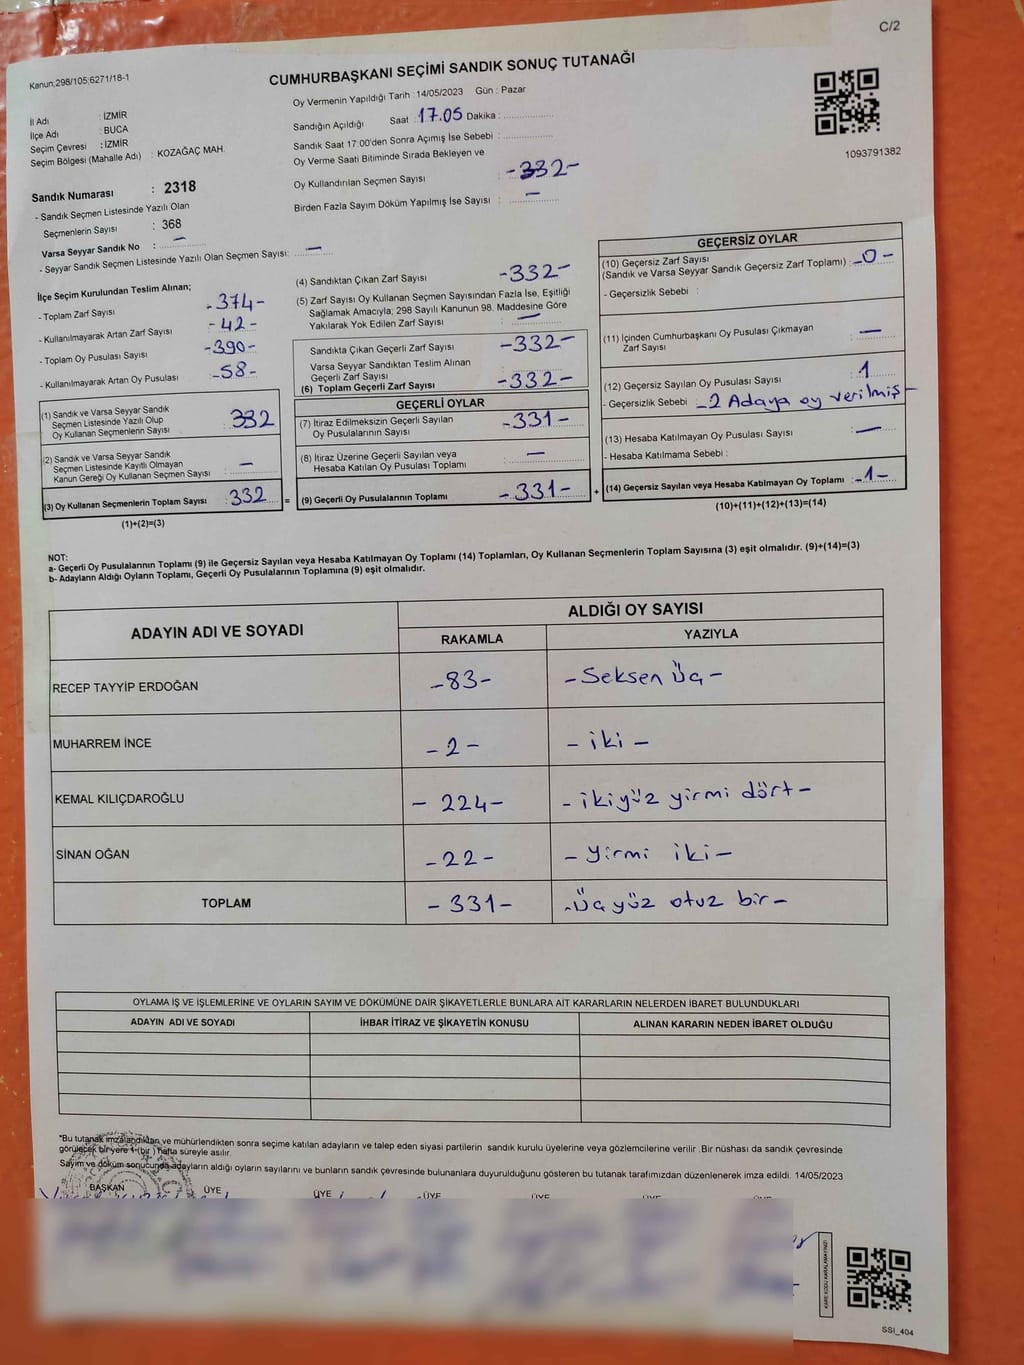 C/2
Kanun:298/105:6271/18-1
CUMHURBAŞKANI SEÇİMİ SANDIK SONUÇ TUTANAĞI
1093791382
İl Adı : İZMİR
İlçe Adı : BUCA
Seçim Çevresi : İZMİR
Seçim Bölgesi (Mahalle Adı) : KOZAĞAÇ MAH.
Sandık Numarası : 2318
- Sandık Seçmen Listesinde Yazılı Olan
Seçmenlerin Sayısı : 368
Varsa Seyyar Sandık No : —
- Seyyar Sandık Seçmen Listesinde Yazılı Olan Seçmen Sayısı: —
Oy Vermenin Yapıldığı Tarih : 14/05/2023 Gün : Pazar
Sandığın Açıldığı Saat : 17.05 Dakika :
Sandık Saat 17:00'den Sonra Açımış İse Sebebi :
Oy Verme Saati Bitiminde Sırada Bekleyen ve
Oy Kullandırılan Seçmen Sayısı : -332-
Birden Fazla Sayım Döküm Yapılmış İse Sayısı : —
İlçe Seçim Kurulundan Teslim Alınan;
- Toplam Zarf Sayısı -374-
- Kullanılmayarak Artan Zarf Sayısı -42-
- Toplam Oy Pusulası Sayısı -390-
- Kullanılmayarak Artan Oy Pusulası -58-
(1) Sandık ve Varsa Seyyar Sandık
Seçmen Listesinde Yazılı Olup
Oy Kullanan Seçmenlerin Sayısı 332
(2) Sandık ve Varsa Seyyar Sandık
Seçmen Listesinde Kayıtlı Olmayan
Kanun Gereği Oy Kullanan Seçmen Sayısı —
(3) Oy Kullanan Seçmenlerin Toplam Sayısı 332 =
(1)+(2)=(3)
(4) Sandıktan Çıkan Zarf Sayısı -332-
(5) Zarf Sayısı Oy Kullanan Seçmen Sayısından Fazla İse, Eşitliği
Sağlamak Amacıyla; 298 Sayılı Kanunun 98. Maddesine Göre
Yakılarak Yok Edilen Zarf Sayısı : —
Sandıkta Çıkan Geçerli Zarf Sayısı -332-
Varsa Seyyar Sandıktan Teslim Alınan
Geçerli Zarf Sayısı
(6) Toplam Geçerli Zarf Sayısı -332-
GEÇERLİ OYLAR
(7) İtiraz Edilmeksizin Geçerli Sayılan
Oy Pusulalarının Sayısı -331-
(8) İtiraz Üzerine Geçerli Sayılan veya
Hesaba Katılan Oy Pusulası Toplamı : —
(9) Geçerli Oy Pusulalarının Toplamı -331- +
GEÇERSİZ OYLAR
(10) Geçersiz Zarf Sayısı
(Sandık ve Varsa Seyyar Sandık Geçersiz Zarf Toplamı) : -0-
- Geçersizlik Sebebi :
(11) İçinden Cumhurbaşkanı Oy Pusulası Çıkmayan
Zarf Sayısı —
(12) Geçersiz Sayılan Oy Pusulası Sayısı 1
- Geçersizlik Sebebi : -2 Adaya oy verilmiş-
(13) Hesaba Katılmayan Oy Pusulası Sayısı : —
- Hesaba Katılmama Sebebi :
(14) Geçersiz Sayılan veya Hesaba Katılmayan Oy Toplamı : -1-
(10)+(11)+(12)+(13)=(14)
NOT:
a- Geçerli Oy Pusulalarının Toplamı (9) ile Geçersiz Sayılan veya Hesaba Katılmayan Oy Toplamı (14) Toplamları, Oy Kullanan Seçmenlerin Toplam Sayısına (3) eşit olmalıdır. (9)+(14)=(3)
b- Adayların Aldığı Oyların Toplamı, Geçerli Oy Pusulalarının Toplamına (9) eşit olmalıdır.
ADAYIN ADI VE SOYADI ALDIĞI OY SAYISI
RAKAMLA YAZIYLA
RECEP TAYYİP ERDOĞAN -83- -Seksen Üç-
MUHARREM İNCE -2- -iki-
KEMAL KILIÇDAROĞLU -224- -ikiyüz yirmi dört-
SİNAN OĞAN -22- -yirmi iki-
TOPLAM -331- -Üçyüz otuz bir-
OYLAMA İŞ VE İŞLEMLERİNE VE OYLARIN SAYIM VE DÖKÜMÜNE DAİR ŞİKAYETLERLE BUNLARA AİT KARARLARIN NELERDEN İBARET BULUNDUKLARI
ADAYIN ADI VE SOYADI İHBAR İTİRAZ VE ŞİKAYETİN KONUSU ALINAN KARARIN NEDEN İBARET OLDUĞU
*Bu tutanak imzalandıktan ve mühürlendikten sonra seçime katılan adayların ve talep eden siyasi partilerin sandık kurulu üyelerine veya gözlemcilerine verilir. Bir nüshası da sandık çevresinde
görülecek bir yere 1 (bir) hafta süreyle asılır.
Sayım ve döküm sonucunda adayların aldığı oyların sayılarını ve bunların sandık çevresinde bulunanlara duyurulduğunu gösteren bu tutanak tarafımızdan düzenlenerek imza edildi. 14/05/2023
BAŞKAN ÜYE ÜYE ÜYE ÜYE ÜYE ÜYE
KARE KODU KARALAMAYINIZ!
SSI_404